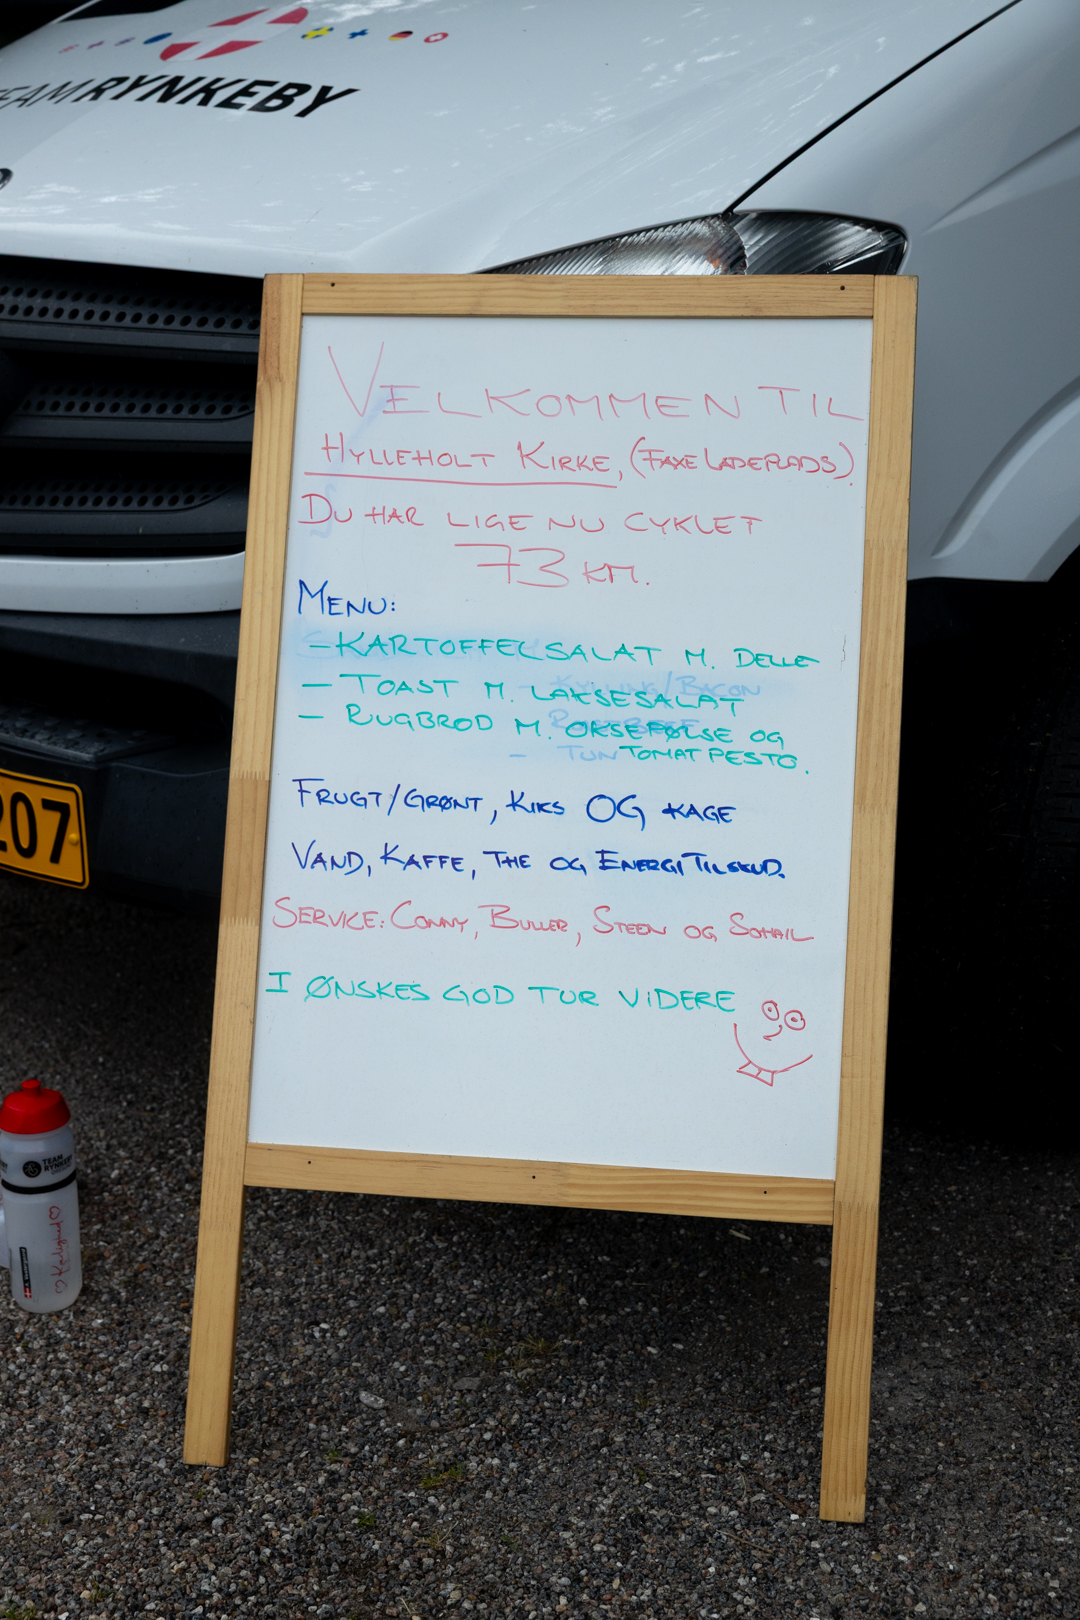 TEAM RYNKEBY
207
VELKOMMEN TIL
HYLLEHOLT KIRKE, (FAXE LADEPLADS).
DU HAR LIGE NU CYKLET
73 KM.
MENU:
- KARTOFFELSALAT M. DELLE
- TOAST M. LAKSESALAT
KYLLING/BACON
- RUGBRØD M. OKSEPØLSE OG
- TUN TOMATPESTO.
FRUGT/GRØNT, KIKS OG KAGE
VAND, KAFFE, THE OG ENERGITILSKUD.
SERVICE: CONNY, BULLER, STEEN OG SOHAIL
I ØNSKES GOD TUR VIDERE
TEAM
RYNKEBY
♡ Kærlighed ♡